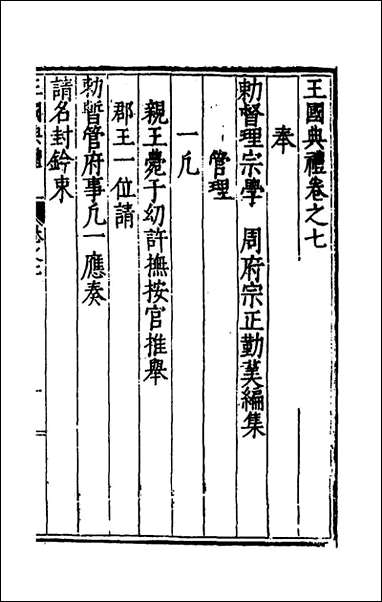 王國典禮卷之七
奉
勅督理宗學 周府宗正勤羙編集
管理
一凢
親王薨子幼許撫按官推舉
郡王一位請
勅暫管府事凢一應奏
請名封鈐束
王國典禮 卷之七 一